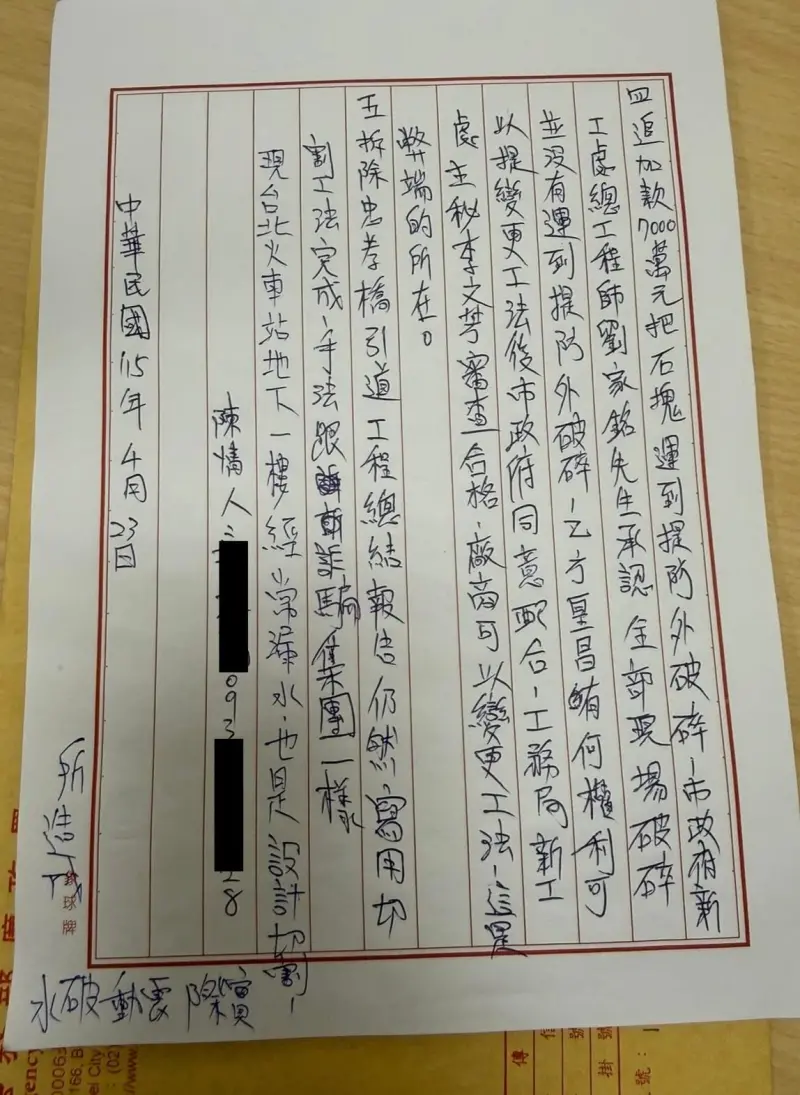 四追加款7000萬元把石塊運到提防外破碎,市政府新
工處總工程師劉家銘先生承認全部現場破碎
並沒有運到提防外破碎,乙方皇昌有何權利可
以提變更工法後市政府同意配合,工務局新工
處主秘李文芳審查合格,廠商可以變更工法,這是
弊端的所在。
五拆除忠孝橋引道工程總結報告仍然寫用切
割工法完成,手法跟詐騙集團一樣
現台北火車站地下一樓經常漏水,也是設計切割,
實際震動破水
所造成
陳情人:
093
28
中華民國115年4月23日
球牌
傳
信
掛號
號: